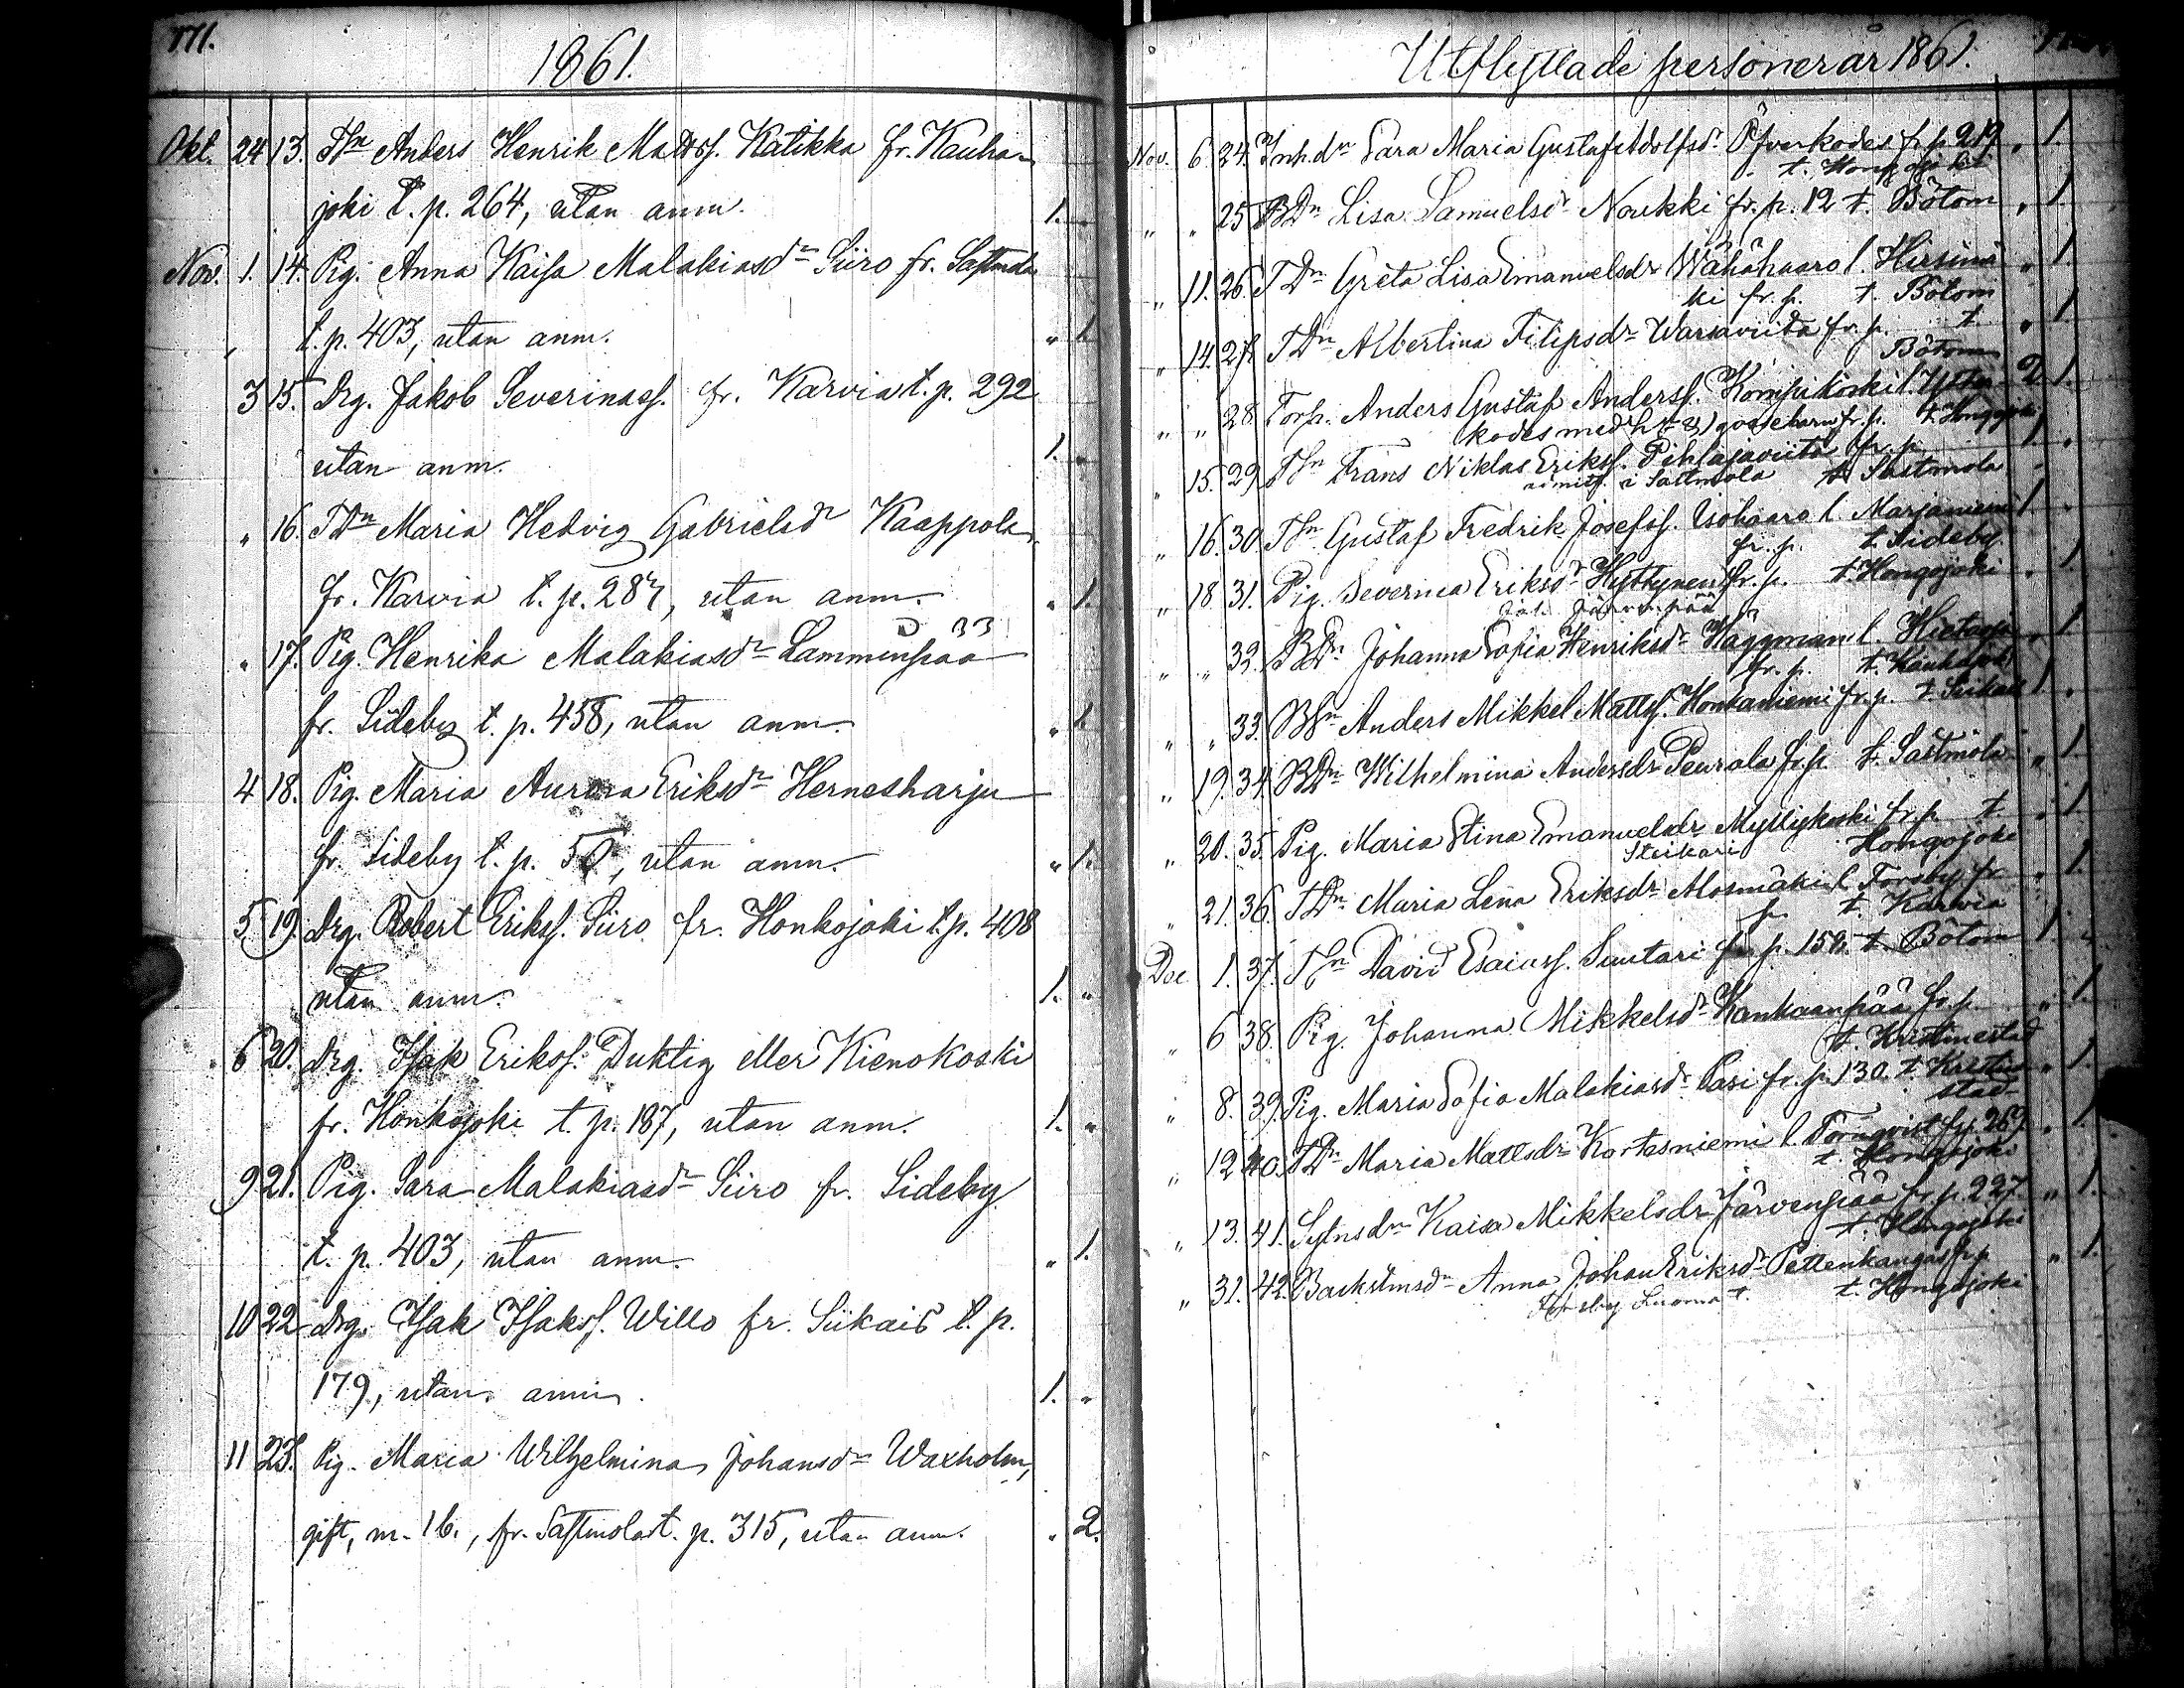 171.
1861.
Okt. 24 13. Tsn Anders Henrik Mattss. Katikka fr. Kauha-
joki t. p. 264, utan anm. 1.
Nov. 1. 14. Pig. Anna Kaisa Malakiasdr Siiro fr. Sastmola
t. p. 403, utan anm. " 1.
3 15. Drg. Jakob Severinass. fr. Karvia t. p. 292
utan anm. 1. "
" 16. TDn Maria Hedvig Gabrielsdr Kaappola
fr. Karvia t. p. 287, utan anm. " 1.
33
" 17. Pig. Henrika Malakiasdr Lammenpää
fr. Sideby t. p. 458, utan anm. " 1.
4 18. Pig. Maria Aurora Eriksdr Hernesharju
fr. Sideby t. p. , utan anm. " 1.
5 19. Drg. Robert Erikss. Siiro fr. Honkojoki t. p. 408
utan anm. 1. "
6 20. Drg. Isak Erikss. Duktig eller Kienokoski
fr. Honkojoki t. p. 187, utan anm. 1. "
9 21. Pig. Sara Malakiasdr Siiro fr. Sideby
t. p. 403, utan anm. " 1.
10 22 Drg. Isak Isakss. Willo fr. Siikais t. p.
179, utan anm. 1. "
11 23. Pig. Maria Wilhelmina Johansdr Waxholm,
gift, m. 1 b., fr. Sastmola t. p. 315, utan anm. " 2.
Utflyttade personer år 1861.
Nov. 6. 24. Inh.dr Sara Maria Gustafadolfsd. Öfverkodes fr. p. 219 " 1.
t. Hongojoki
" " 25. BDn Lisa Samuelsdr Noukki fr. p. 12 t. Bötom " 1.
" 11. 26. TDn Greta Lisa Emanuelsdr Wähähaaro l. Hirsimä " 1.
ki fr. p. t. Bötom
" 14. 27. TDn Albertina Filipsdr Warsaviita fr. p. t. " 1.
Bötom
" " 28. Torp. Anders Gustaf Anderss. Kömpikoski l. 2 1.
kodes med h. t. & 1 gossebarn fr. p. t. Hongojoki
" 15. 29. Tsn Frans Niklas Erikss. Pihlajaviita fr. p. 1. "
i Sastmola t. Sastmola
" 16. 30. Tsn Gustaf Fredrik Josefss. Isohaaro l. Marjaniemi 1. "
fr. p. t. Sideby
" 18. 31. Pig. Severina Eriksdr Hyttynen fr. p. t. Hongojoki " 1.
Järvenpää
" " 32. BDn Johanna Sofia Henriksdr Häggman l. Hietaoja " 1.
fr. p. t. Kauhajoki
" " 33. Bsn Anders Mikkel Mattss. Honkaniemi fr. p. t. Siikais 1. "
" 19. 34. BDn Wilhelmina Andersdr Peurala fr. p. t. Sastmola " 1.
" 20. 35. Pig. Maria Stina Emanuelsdr Myllykoski fr. p. t. " 1.
Steikari Hongojoki
" 21. 36. TDn Maria Lena Eriksdr Mosmäki l. Forsby fr. " 1.
p. t. Karvia
Dec 1. 37. Tsn David Esaiass. Suutari fr. p. 159. t. Bötom 1. "
" 6 38. Pig. Johanna Mikkelsdr Kankaanpää fr. p. " 1.
t. Kristinestad
" 8. 39. Pig. Maria Sofia Malakiasdr Pasi fr. p. 130. t. Kristine " 1.
stad
" 12 40. TDn Maria Mattsdr Kortesniemi l. Törnqvist fr. p. 269. " 1.
t. Hongojoki
" 13. 41. Sytnsdr Kaisa Mikkelsdr Järvenpää fr. p. 227. " 1.
t. Hongojoki
" 31. 42. Backstmsdr Anna Johan Eriksdr Pettenkangas fr. p. " 1.
Luoma t. t. Hongojoki